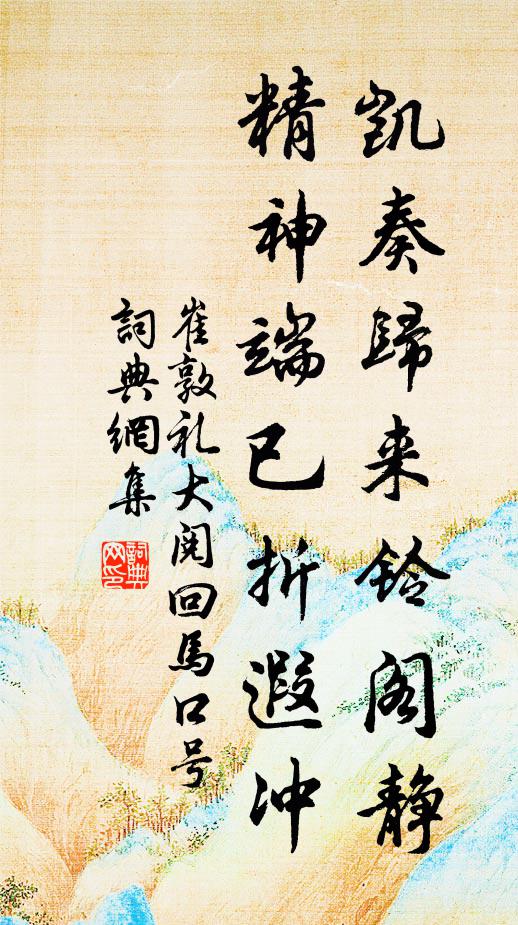 凯奏歸来鈴阁静
精神端已折遐冲
崔敦礼大阅回馬口号
詞典網集
詞典网印